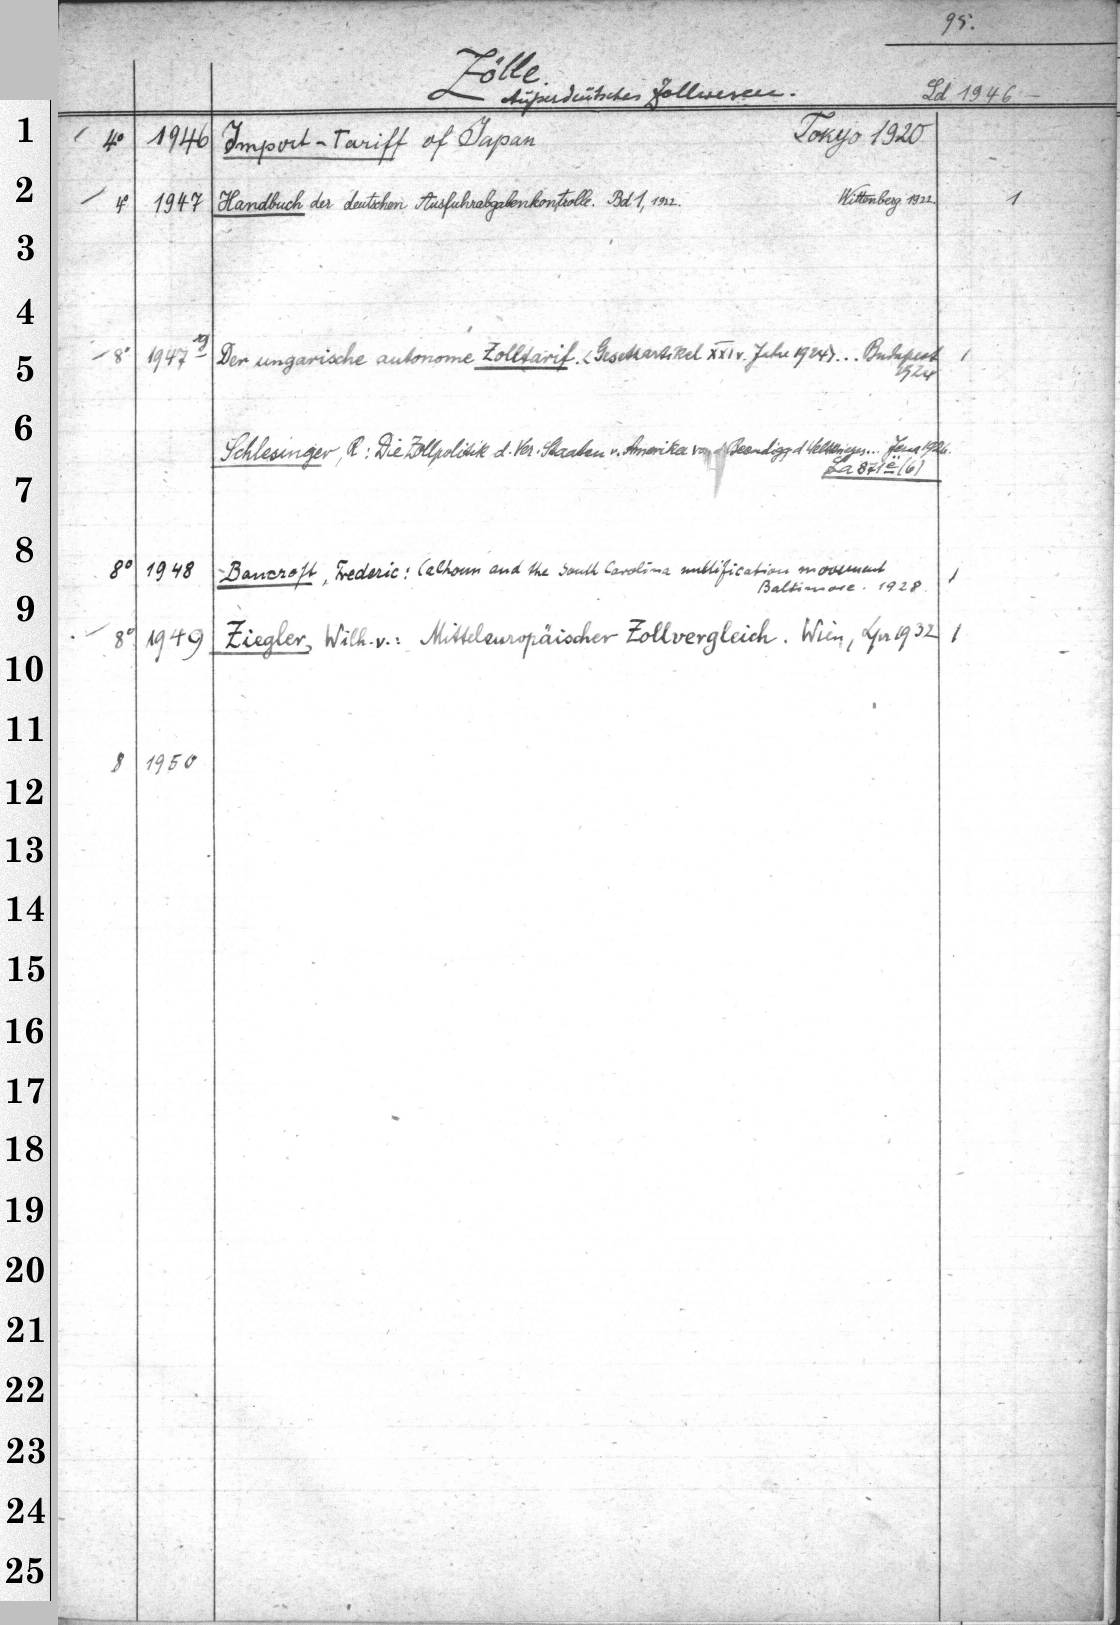 95.
Zölle.
Außerdeutsches Zollwesen.
Ld 1946 -
1 4° 1946 Import-Tariff of Japan Tokyo 1920
2 4° 1947 Handbuch der deutschen Ausfuhrabgabenkontrolle. Bd 1, 1922. Wittenberg 1922 1
3
4
5 8° 1947 g Der ungarische autonome Zolltarif. <Gesetzartikel XXI v. Jahr 1924> ... Budapest 1
1924
6
Schlesinger, R: Die Zollpolitik d. Ver. Staaten v. Amerika von d Beendigg d Weltkrieges... Jena 1926.
La 871 e (6)
7
8
8° 1948 Bancroft, Frederic: Calhoun and the South Carolina nullification movement 1
Baltimore. 1928.
9
8° 1949 Ziegler, Wilh. v.: Mitteleuropäischer Zollvergleich. Wien, Lpz 1932 1
10
11
8 1950
12
13
14
15
16
17
18
19
20
21
22
23
24
25